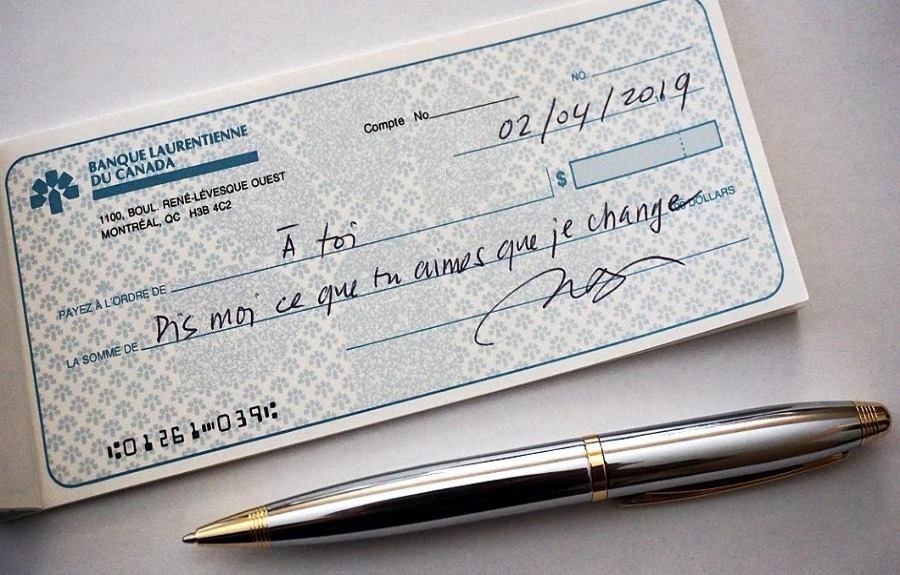 BANQUE LAURENTIENNE
DU CANADA
1100, BOUL. RENÉ-LÉVESQUE OUEST
MONTRÉAL, QC H3B 4C2
Compte No
NO.
02/04/2019
$
PAYEZ À L'ORDRE DE À toi
LA SOMME DE Dis moi ce que tu aimes que je change DOLLARS
⑆01261⑉039⑆